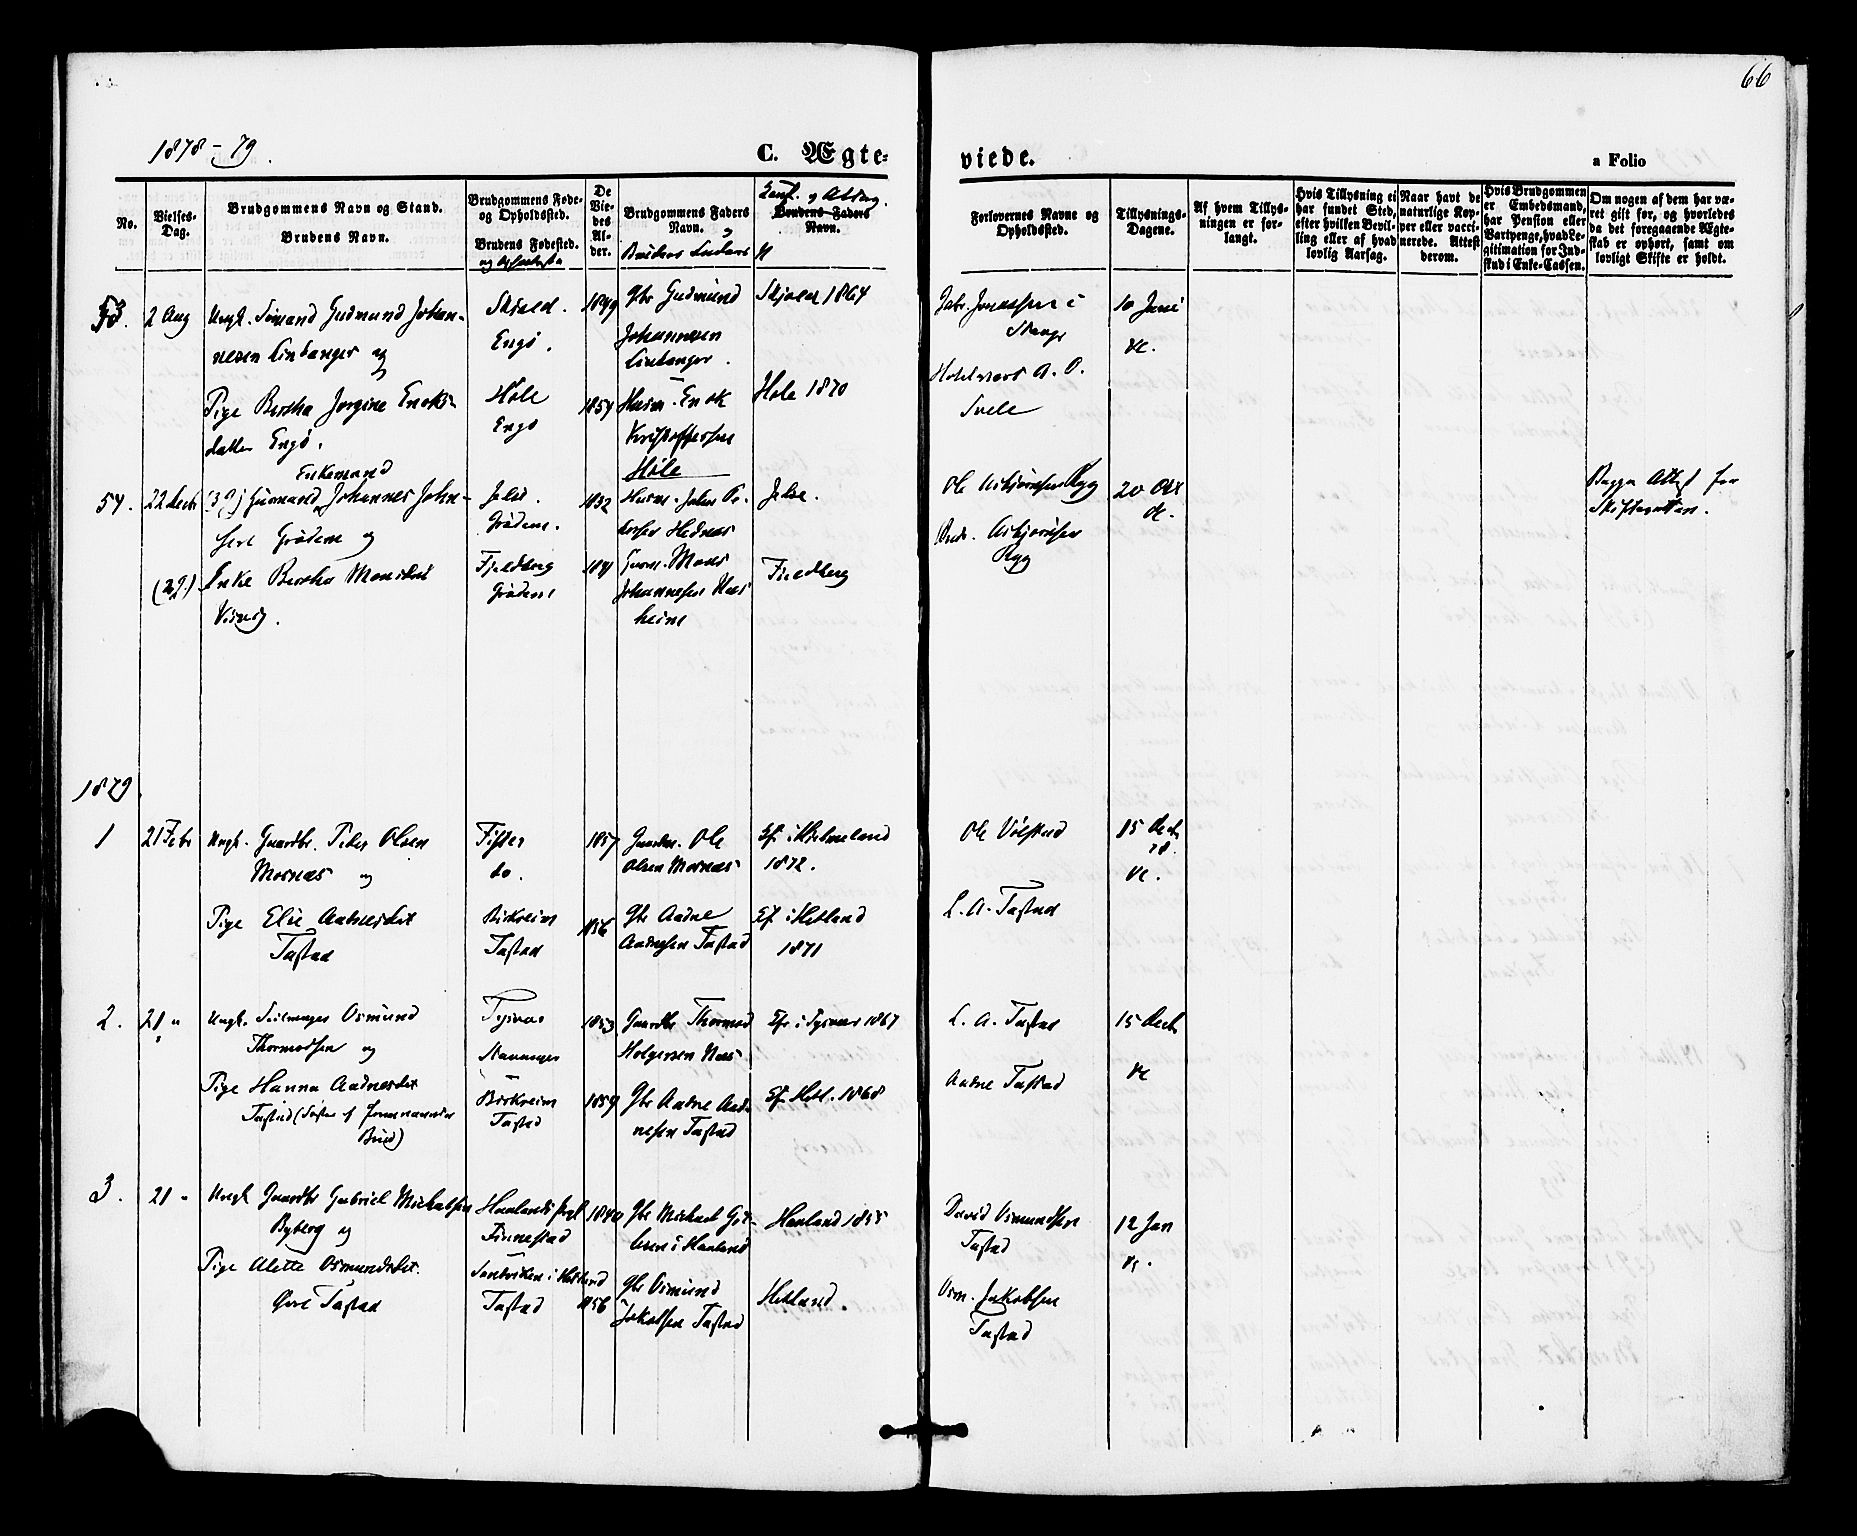 66
1878-79.
C. Ægteviede.
a Folio
No.
Vielses-Dag.
Brudgommens Navn og Stand.
Brudens Navn.
Brudgommens Føde- og Opholdssted.
Brudens Fødested.
De Viedes Alder.
Brudgommens Faders Navn.
og
Brudens Faders N
Conf. og Attest
Brudens Faders Navn.
Forlovernes Navne og Opholdssted.
Tillysnings-Dagene.
Af hvem Tillysningen er forlangt.
Hvis Tillysning ei har fundet Sted, efter hvilken Bevilling eller af hvad lovlig Aarsag.
Naar havt de naturlige Kopper eller vaccinerede. Attest derom.
Hvis Brudgommen er Embedsmand, har Pension eller Vartpenge, hvad Legitimation for Indskud i Enke-Cassen.
Om nogen af dem har været gift før, og hvorledes da det foregaaende Ægteskab er ophørt, samt om lovligt Skifte er holdt.
53.
2 Aug
Ungk. Sømand Gudmund Johannesen Lindanger og
Skjold.
Engø.
1849
Gbr Gudmund
Johannesen
Lindanger.
Skjold 1864
Jonassen i
10 Juni
Pige Bertha Jorgine Enoksdatter Engø.
Høle
Engø
1854
Husm. Enok
Kristoffersen
Høle
Høle 1870
Hotelvært A. O.
Svele
54.
22 Decbr
Enkemand
(37) Gaardmand Johannes Johnsen Grødem og
Jelse.
Grødem.
1832
Husm. John Pedersen Hednæs
Jelse.
Ole Asbjørnsen Ryg
20 Okt
Begge Attest fra
Skifteretten.
(29.)
Enke Bertha Monsdat
Fjeldberg
Grødem
1841
Gaardm. Mons
Johannesen
Fjeldberg
Asbjørnsen
Ryg
1879.
1
21 Febr
Ungk. Gaardbr. Peder Olsen
Mosnæs og
Fister
do.
1857
Gaardm. Ole
Olsen Mosnæs
Ef. i Hjelmeland
1872.
Ole Vølstad
15 Dech
78.
Pige Elie Aadnesdat
Tastad
Birkreim
Tastad
1856
Gbr Aadne
Aadnesen Tastad
Ef i Hetland
1871
L. A. Tastad
2.
21 "
Ungk. Seilmager Osmund
Thormodsen og
Tysvær
Stavanger
1853
Gaardbr Thormod
Holgersen Næs
Efr. i Tysvær 1867
L. A. Tastad
15 Dech
Pige Hanna Aadnesdat
Tastad (Søster af forannævnte
Brud)
Birkreim
Tastad
1859
Gbr Aadne Aadnesen Tastad
Ef. Hetl. 1868
Aadne Tastad
3.
21 "
Ungk Gaardbr Gabriel Michalsen
Byberg og
Haalands Prgl
Finnestad
1840
Gbr Michael
i Haaland
Haaland 1855
David Osmundsen
Tastad
12 Jan
Pige Alette Osmundsdat.
Øvre Tastad
Sandviken i Hetland
Tastad
1856
Gbr Osmund
Jakobsen Tastad
Hetland.
Osm. Jakobsen
Tastad